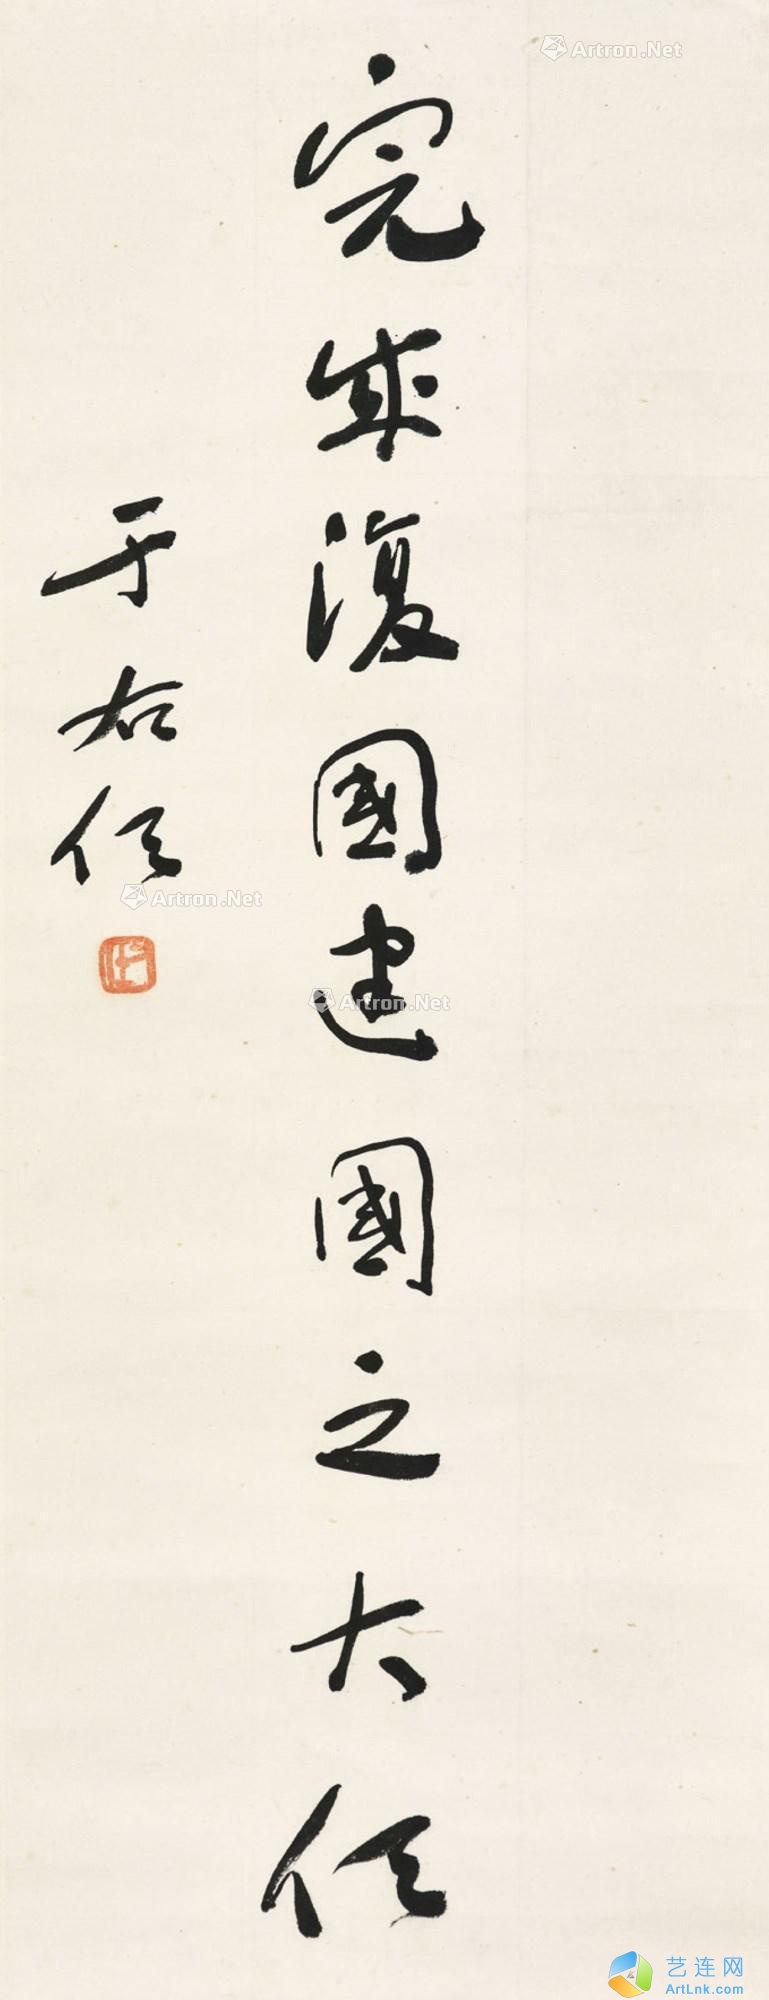 完成復國建國之大任
于右任
Artron.Net
Artron.Net
Artron.Net
艺连网
ArtLnk.com